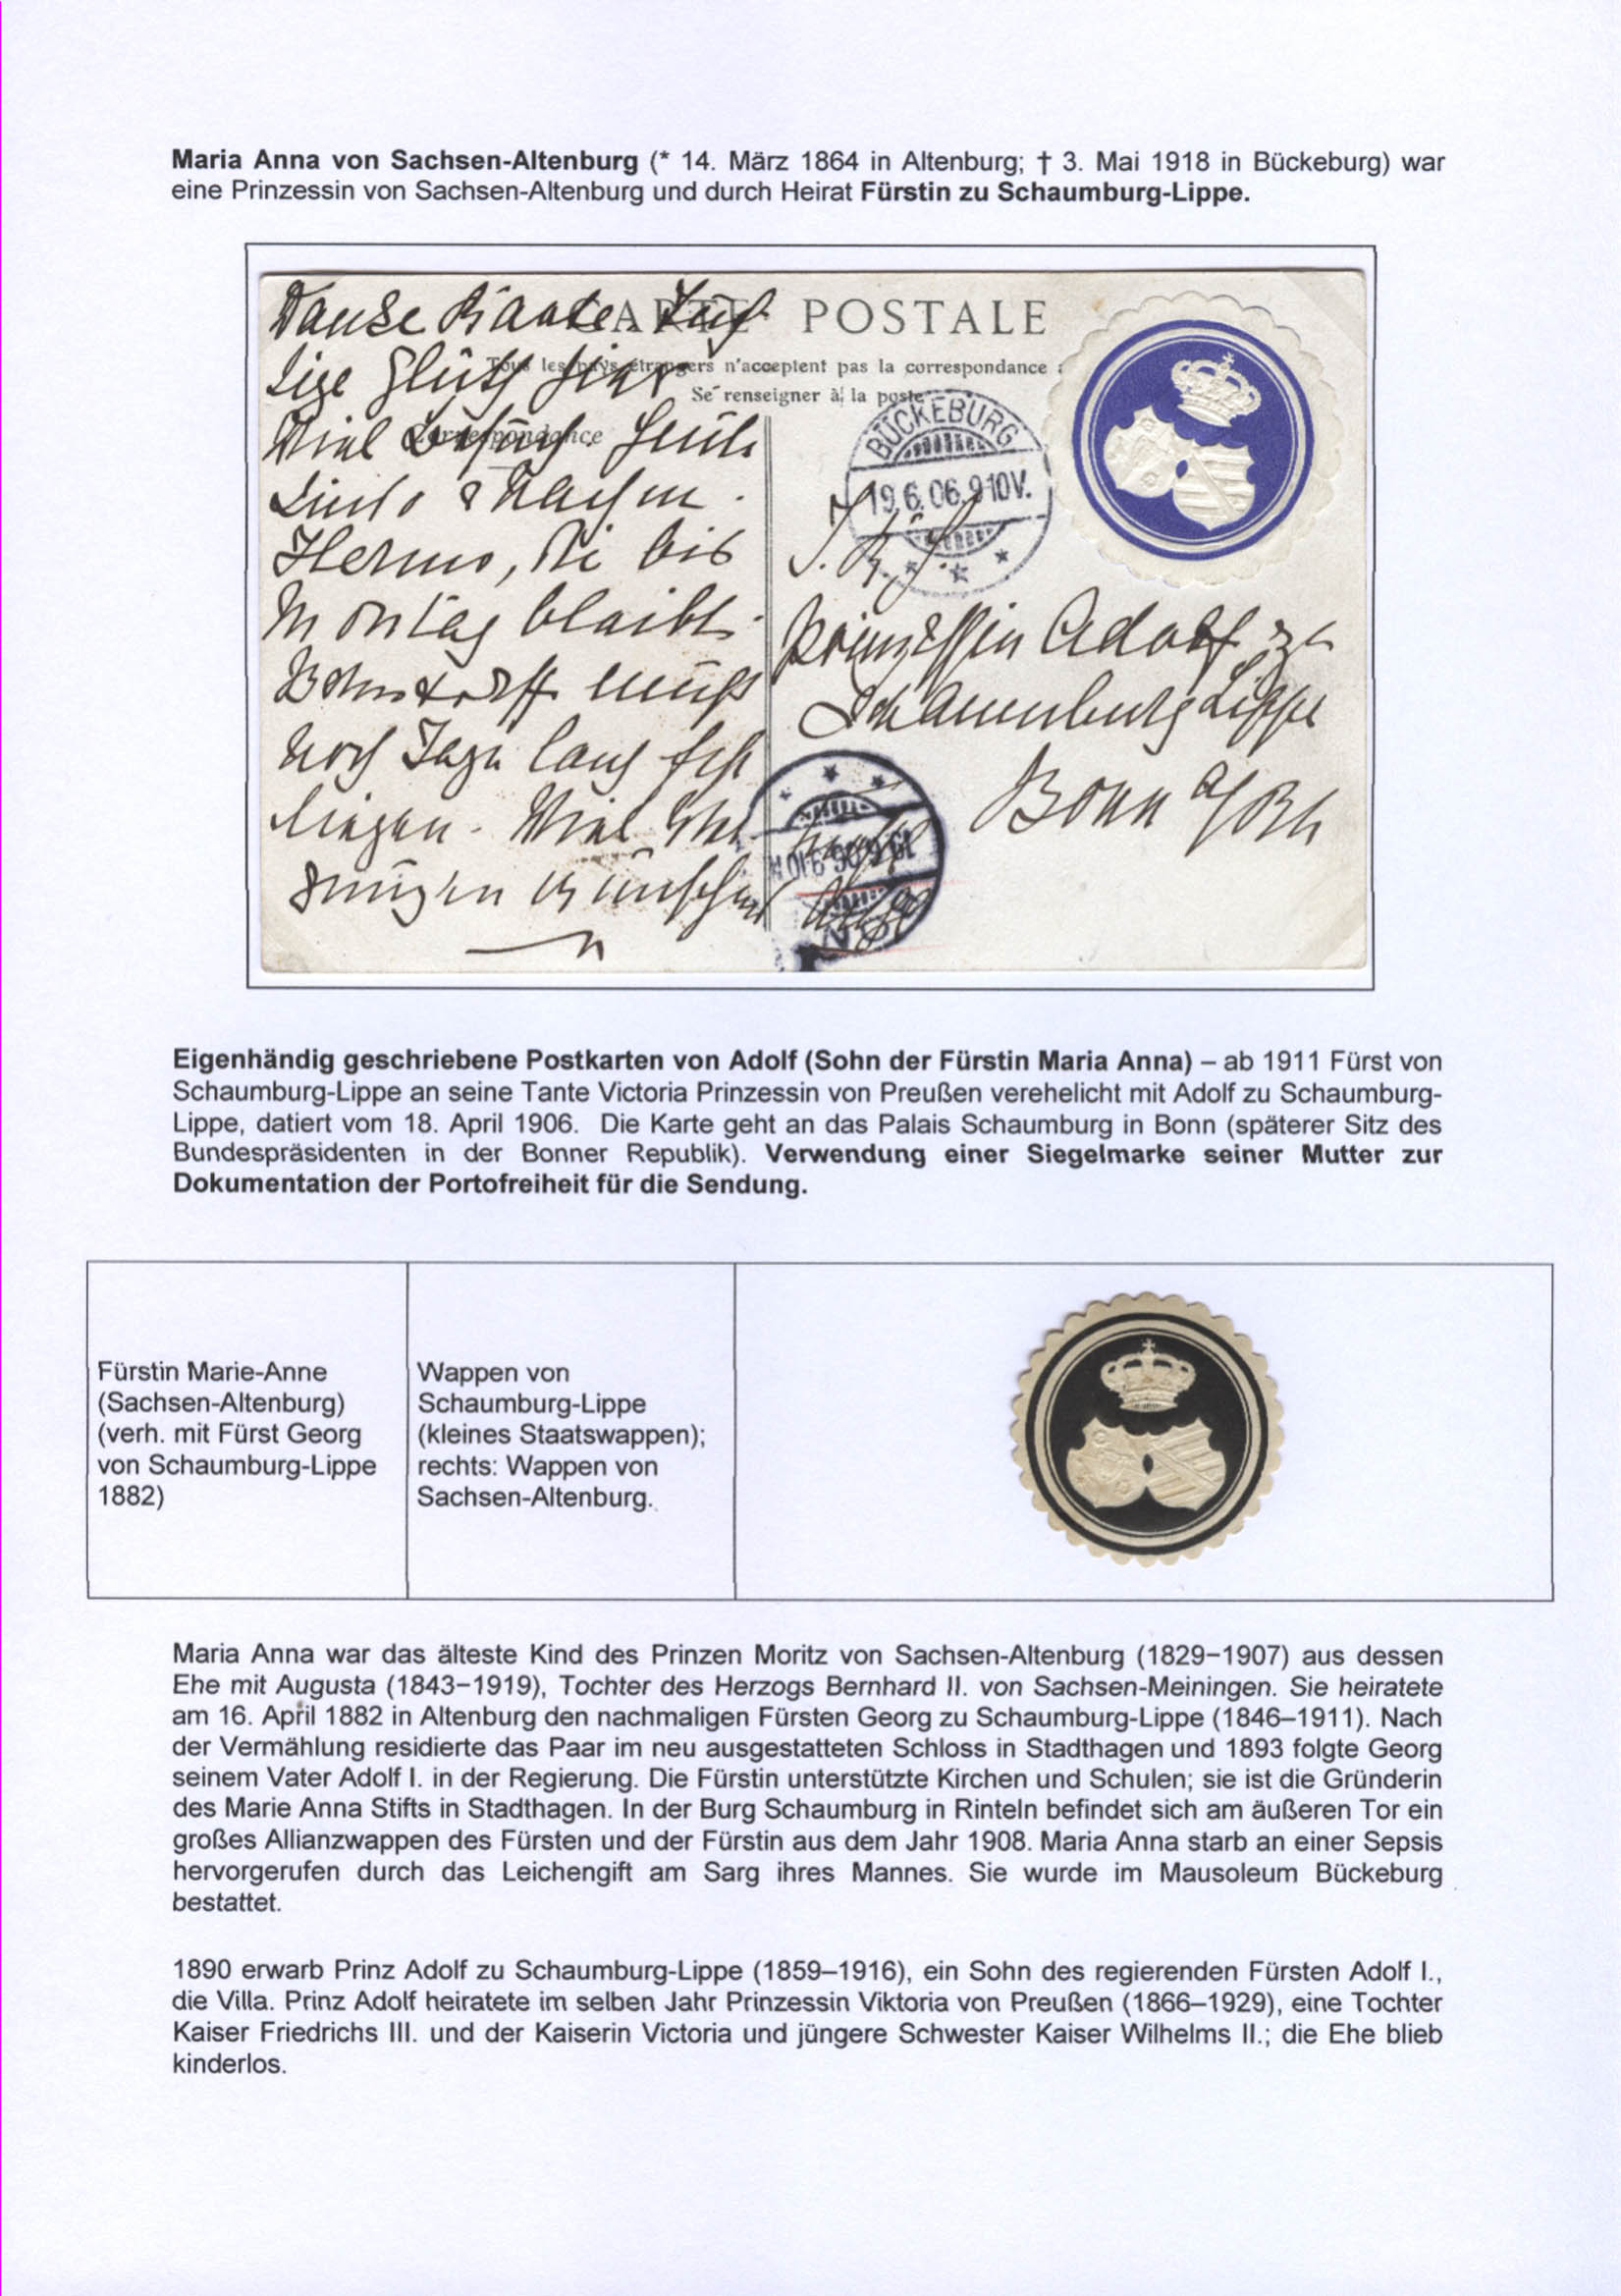 Maria Anna von Sachsen-Altenburg (* 14. März 1864 in Altenburg; † 3. Mai 1918 in Bückeburg) war
eine Prinzessin von Sachsen-Altenburg und durch Heirat Fürstin zu Schaumburg-Lippe.
CARTE POSTALE
Tous les pays étrangers n'acceptent pas la correspondance
Se renseigner à la poste
Correspondance
BÜCKEBURG
19.6.06.9-10V.
Viel
bis
Montag bleibt
muß
noch Tage lang
Viel
Prinzessin Adolf zu
Schaumburg Lippe
Bonn a/Rh
Eigenhändig geschriebene Postkarten von Adolf (Sohn der Fürstin Maria Anna) – ab 1911 Fürst von
Schaumburg-Lippe an seine Tante Victoria Prinzessin von Preußen verehelicht mit Adolf zu Schaumburg-
Lippe, datiert vom 18. April 1906. Die Karte geht an das Palais Schaumburg in Bonn (späterer Sitz des
Bundespräsidenten in der Bonner Republik). Verwendung einer Siegelmarke seiner Mutter zur
Dokumentation der Portofreiheit für die Sendung.
Fürstin Marie-Anne
(Sachsen-Altenburg)
(verh. mit Fürst Georg
von Schaumburg-Lippe
1882)
Wappen von
Schaumburg-Lippe
(kleines Staatswappen);
rechts: Wappen von
Sachsen-Altenburg.
Maria Anna war das älteste Kind des Prinzen Moritz von Sachsen-Altenburg (1829−1907) aus dessen
Ehe mit Augusta (1843−1919), Tochter des Herzogs Bernhard II. von Sachsen-Meiningen. Sie heiratete
am 16. April 1882 in Altenburg den nachmaligen Fürsten Georg zu Schaumburg-Lippe (1846–1911). Nach
der Vermählung residierte das Paar im neu ausgestatteten Schloss in Stadthagen und 1893 folgte Georg
seinem Vater Adolf I. in der Regierung. Die Fürstin unterstützte Kirchen und Schulen; sie ist die Gründerin
des Marie Anna Stifts in Stadthagen. In der Burg Schaumburg in Rinteln befindet sich am äußeren Tor ein
großes Allianzwappen des Fürsten und der Fürstin aus dem Jahr 1908. Maria Anna starb an einer Sepsis
hervorgerufen durch das Leichengift am Sarg ihres Mannes. Sie wurde im Mausoleum Bückeburg
bestattet.
1890 erwarb Prinz Adolf zu Schaumburg-Lippe (1859–1916), ein Sohn des regierenden Fürsten Adolf I.,
die Villa. Prinz Adolf heiratete im selben Jahr Prinzessin Viktoria von Preußen (1866–1929), eine Tochter
Kaiser Friedrichs III. und der Kaiserin Victoria und jüngere Schwester Kaiser Wilhelms II.; die Ehe blieb
kinderlos.